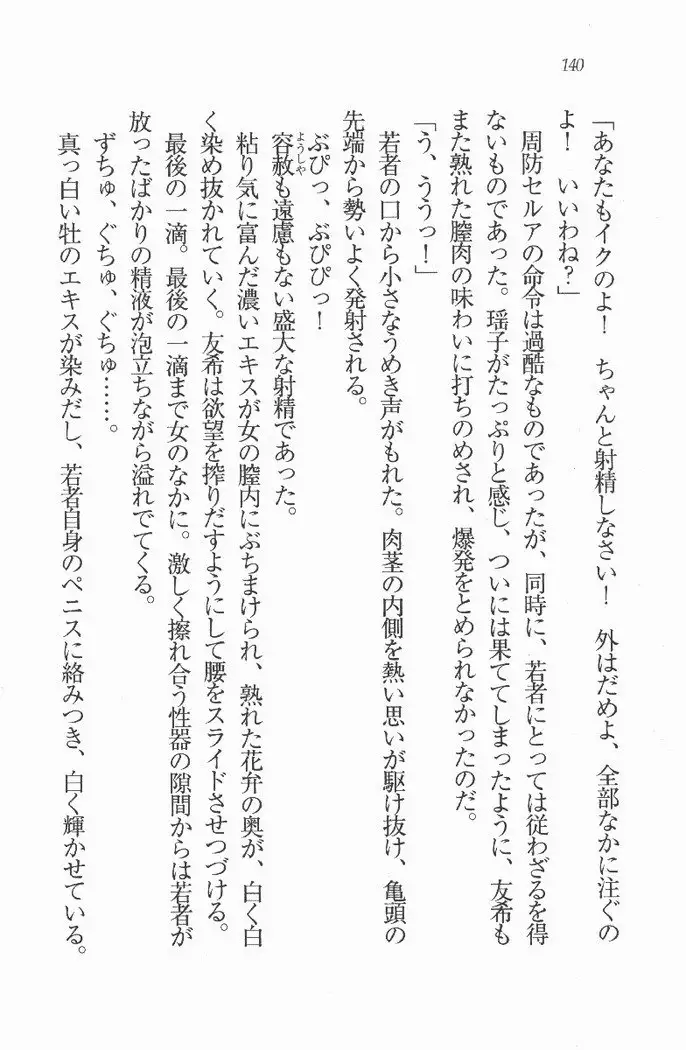 140
「あなたもイクのよ！　ちゃんと射精しなさい！　外はだめよ、全部なかに注ぐの
よ！　いいわね？」
周防セルアの命令は過酷なものであったが、同時に、若者にとっては従わざるを得
ないものであった。瑶子がたっぷりと感じ、ついには果ててしまったように、友希も
また熟れた膣肉の味わいに打ちのめされ、爆発をとめられなかったのだ。
「う、ううっ！」
若者の口から小さなうめき声がもれた。肉茎の内側を熱い思いが駆け抜け、亀頭の
先端から勢いよく発射される。
ぶぴっ、ぶぴぴっ！
容赦も遠慮もない盛大な射精であった。
ようしゃ
粘り気に富んだ濃いエキスが女の膣内にぶちまけられ、熟れた花弁の奥が、白く白
く染め抜かれていく。友希は欲望を搾りだすようにして腰をスライドさせつづける。
最後の一滴。最後の一滴まで女のなかに。激しく擦れ合う性器の隙間からは若者が
放ったばかりの精液が泡立ちながら溢れでてくる。
ずちゅ、ぐちゅ、ぐちゅ……。
真っ白い牡のエキスが染みだし、若者自身のペニスに絡みつき、白く輝かせている。